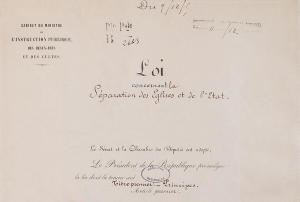 CABINET DU MINISTRE
DE
L'INSTRUCTION PUBLIQUE,
DES BEAUX-ARTS
ET DES CULTES.
Du 9
Loi
concernant la
Séparation des Eglises et de l'Etat.
Le Sénat et la Chambre des Députés ont adopté,
Le Président de la République promulgue
la loi dont la teneur suit
Titre premier - Principes.
Article premier.